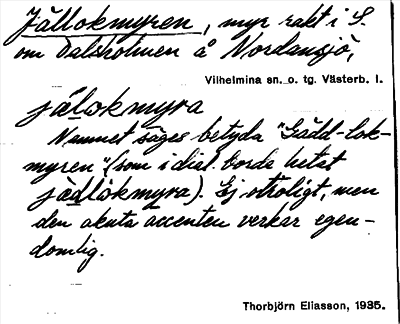 Jällokmyren, myr rakt i S.
om Dalsholmen å Nordansjö,
Vilhelmina sn. o. tg. Västerb. l.
jälokmyra
Namnet säges betyda "Gädd-lok-
myren" (som i dial. borde hetat
jädlokmyra). Ej otroligt, men
den akuta accenten verkar egen-
domlig.
Thorbjörn Eliasson, 1935.